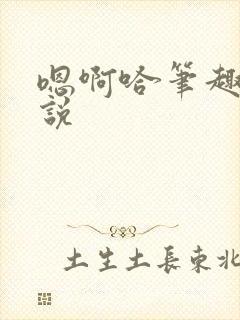 嗯啊哈笔趣
說
土生土長東北